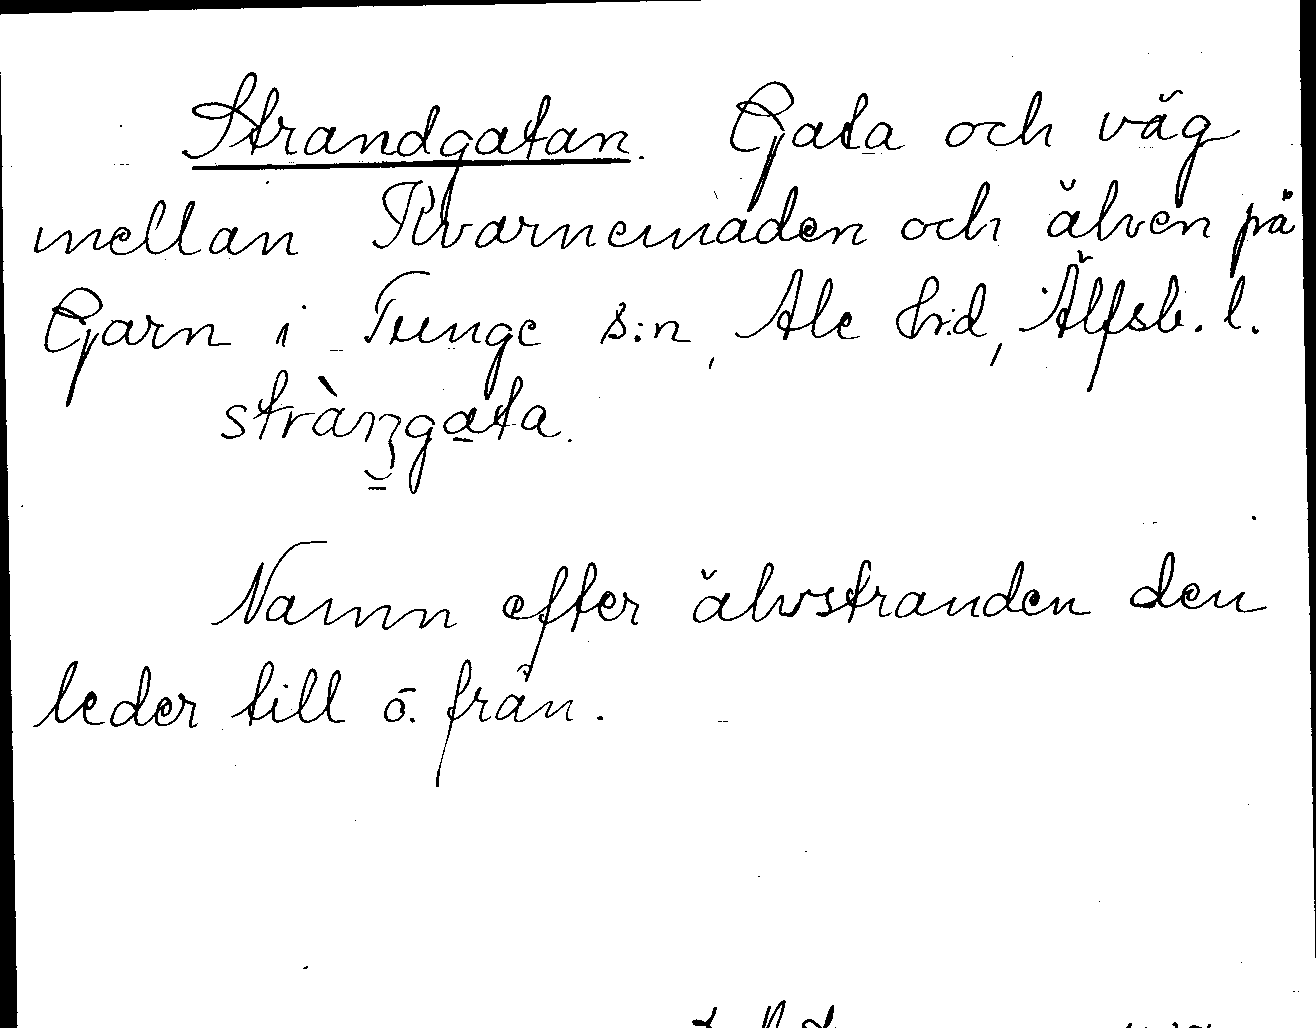 Strandgatan. Gata och väg
mellan Kvarnemaden och älven på
Garn i Tunge s:n, Ale h:d, Älfsb. l.
stràn̥gata.
Namn efter älvstranden den
leder till ö. från.